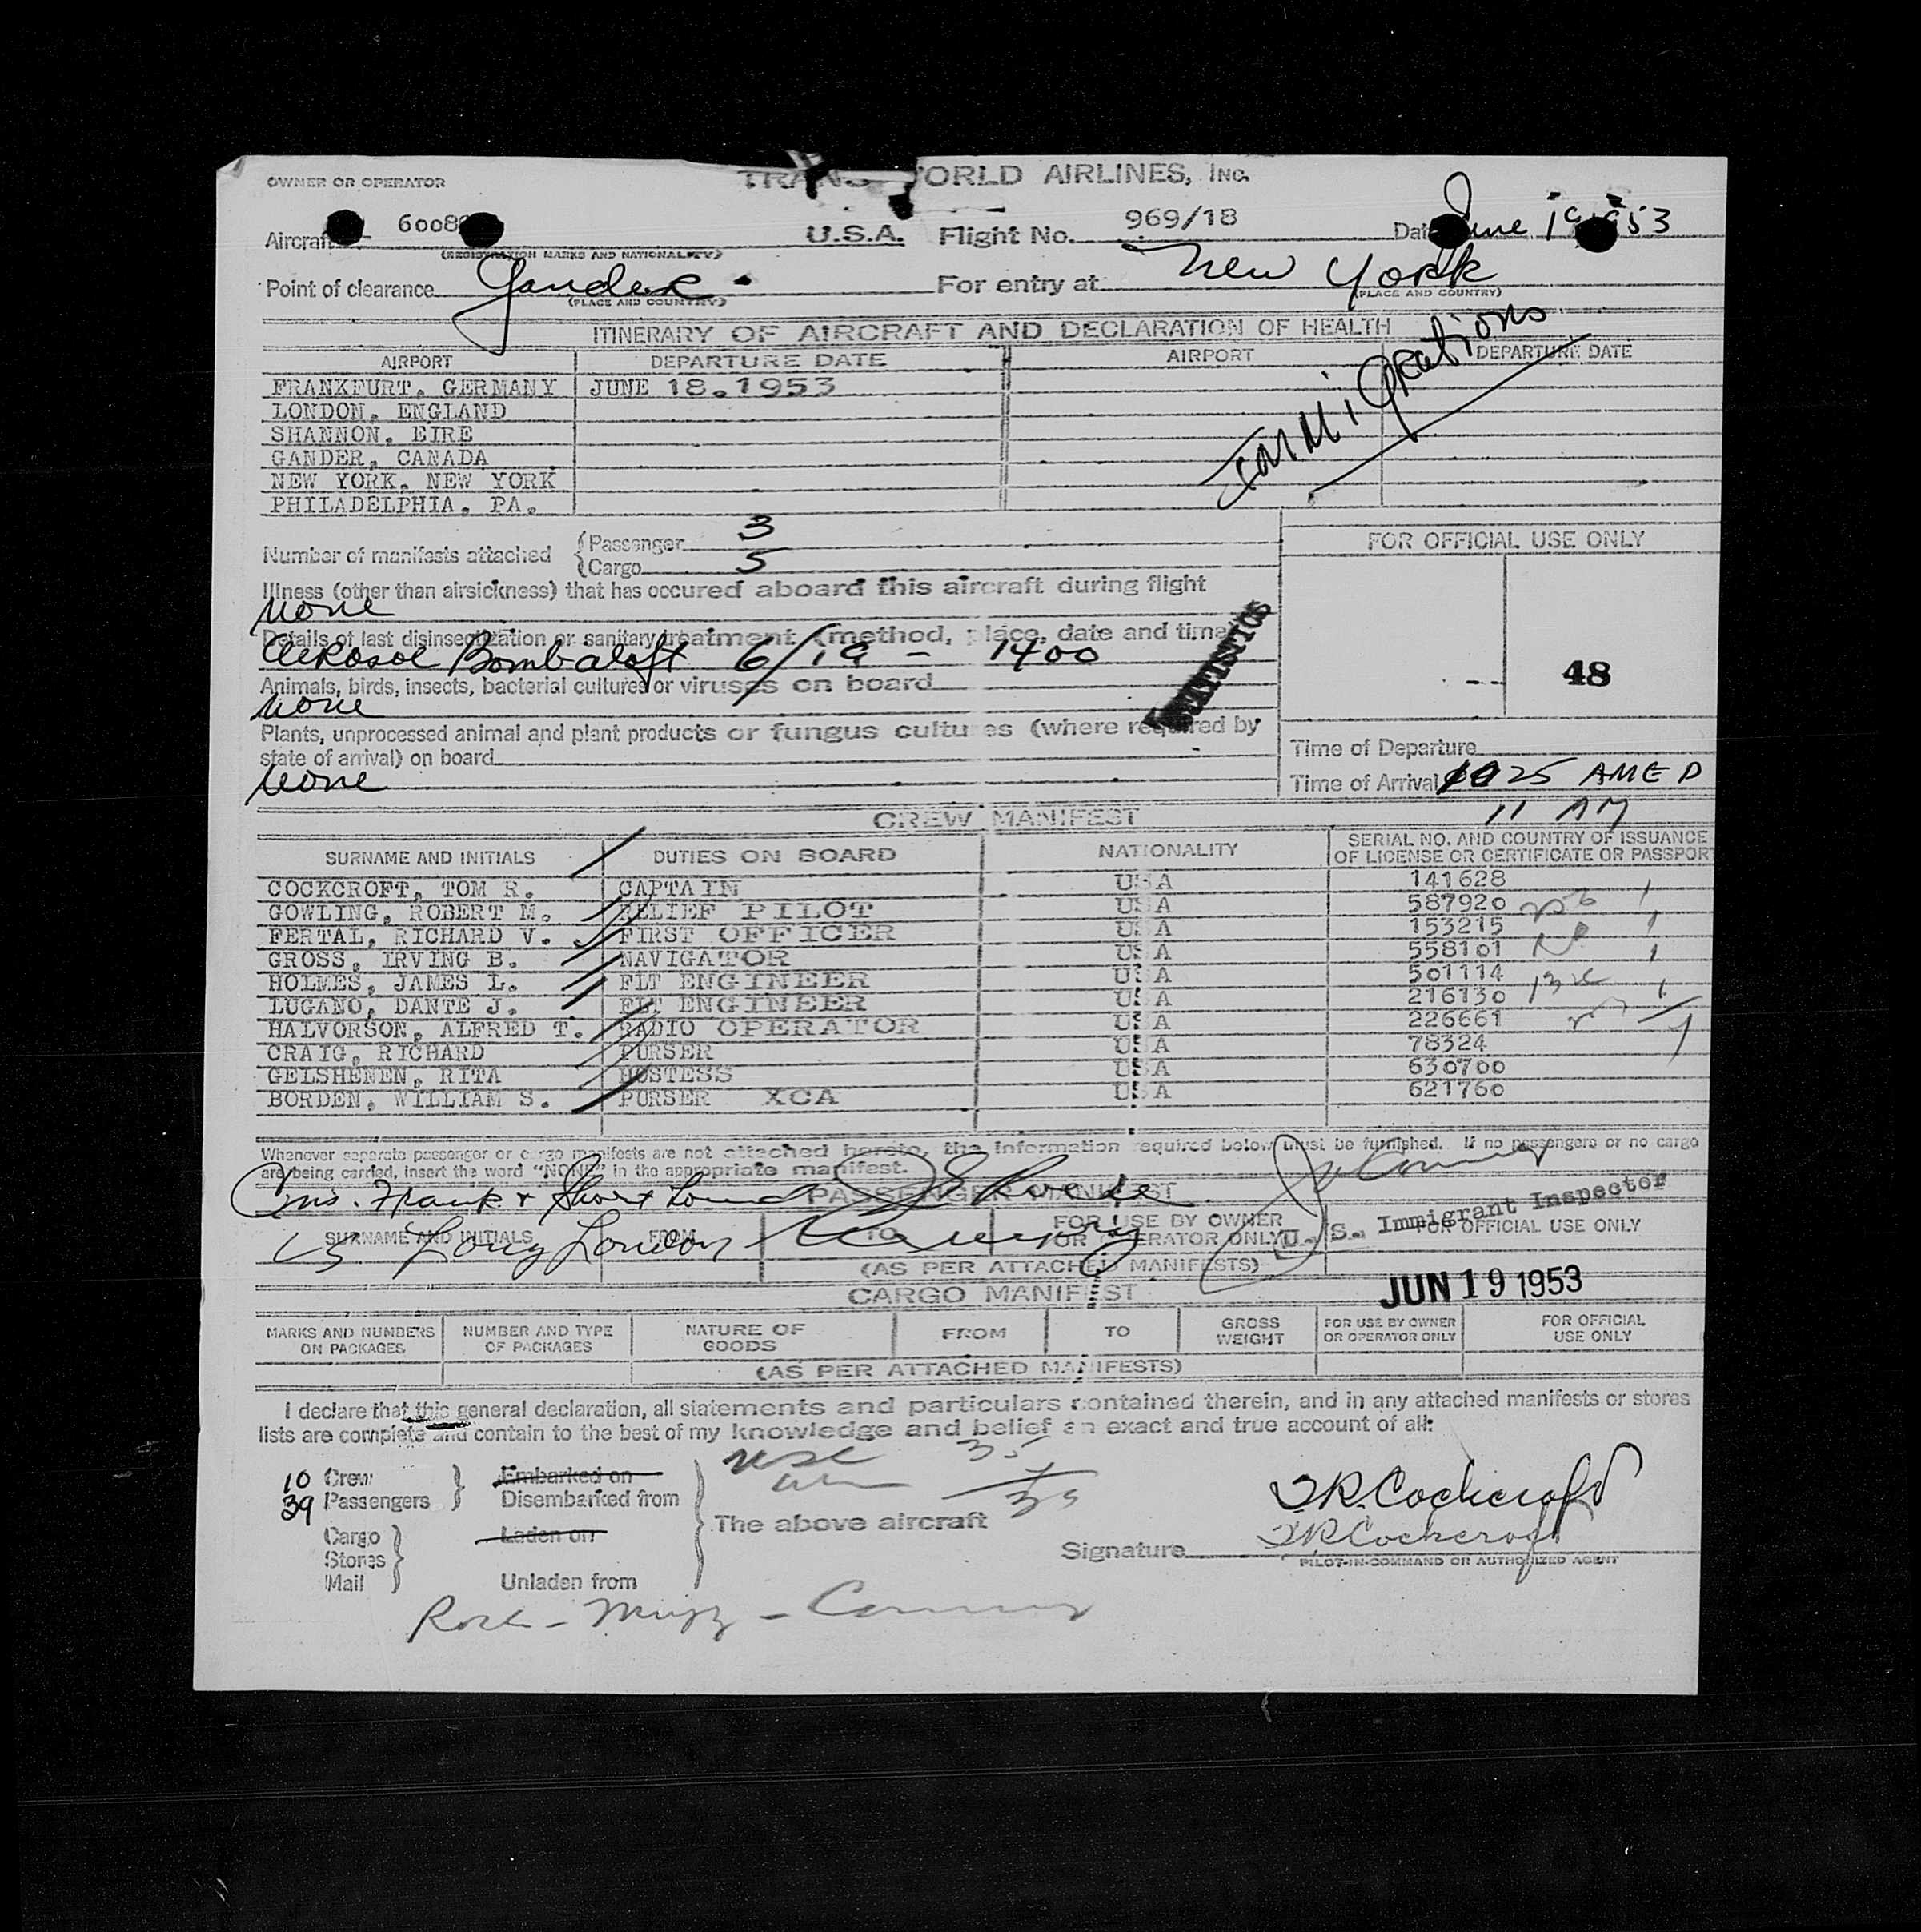 OWNER OR OPERATOR TRANS WORLD AIRLINES, INC.
Aircraft 6008 U.S.A. Flight No. 969/18 Date June 19 1953
(REGISTRATION MARKS AND NATIONALITY)
Point of clearance Gander For entry at New York
(PLACE AND COUNTRY) (PLACE AND COUNTRY)
ITINERARY OF AIRCRAFT AND DECLARATION OF HEALTH
AIRPORT DEPARTURE DATE AIRPORT DEPARTURE DATE
FRANKFURT, GERMANY JUNE 18.1953
LONDON, ENGLAND
SHANNON, EIRE
GANDER, CANADA
NEW YORK, NEW YORK
PHILADELPHIA, PA.
Immigrations
Number of manifests attached { Passenger 3
{ Cargo 5
FOR OFFICIAL USE ONLY
48
Illness (other than airsickness) that has occured aboard this aircraft during flight
None
Details of last disinsectization or sanitary treatment (method, place, date and time)
Aerosol Bomb aloft 6/19 - 1400
Animals, birds, insects, bacterial cultures or viruses on board
None
Plants, unprocessed animal and plant products or fungus cultures (where required by
state of arrival) on board
None
STATISTICS
Time of Departure
Time of Arrival 1025 AM E D
11 AM
CREW MANIFEST
SURNAME AND INITIALS DUTIES ON BOARD NATIONALITY SERIAL NO. AND COUNTRY OF ISSUANCE
OF LICENSE OR CERTIFICATE OR PASSPORT
COCKCROFT, TOM R. CAPTAIN USA 141628
GOWLING, ROBERT M. RELIEF PILOT USA 587920
FERTAL, RICHARD V. FIRST OFFICER USA 153215
GROSS, IRVING B. NAVIGATOR USA 558101
HOLMES, JAMES L. FLT ENGINEER USA 501114
LUGANO, DANTE J. FLT ENGINEER USA 216130
HALVORSON, ALFRED T. RADIO OPERATOR USA 226661
CRAIG, RICHARD PURSER USA 78324
GELSHENEN, RITA HOSTESS USA 630700
BORDEN, WILLIAM S. PURSER XCA USA 621760
Whenever separate passenger or cargo manifests are not attached hereto, the information required below must be furnished. If no passengers or no cargo
are being carried, insert the word "NONE" in the appropriate manifest.
PASSENGER MANIFEST
U. S. Immigrant Inspector
SURNAME AND INITIALS FROM TO FOR USE BY OWNER
OR OPERATOR ONLY FOR OFFICIAL USE ONLY
(AS PER ATTACHED MANIFESTS)
JUN 19 1953
CARGO MANIFEST
MARKS AND NUMBERS
ON PACKAGES NUMBER AND TYPE
OF PACKAGES NATURE OF
GOODS FROM TO GROSS
WEIGHT FOR USE BY OWNER
OR OPERATOR ONLY FOR OFFICIAL
USE ONLY
(AS PER ATTACHED MANIFESTS)
I declare that this general declaration, all statements and particulars contained therein, and in any attached manifests or stores
lists are complete and contain to the best of my knowledge and belief an exact and true account of all:
10 Crew Embarked on
39 Passengers Disembarked from
Cargo Laden on
Stores
Mail Unladen from
The above aircraft
T.R. Cockcroft
TR Cockcroft
Signature
PILOT-IN-COMMAND OR AUTHORIZED AGENT